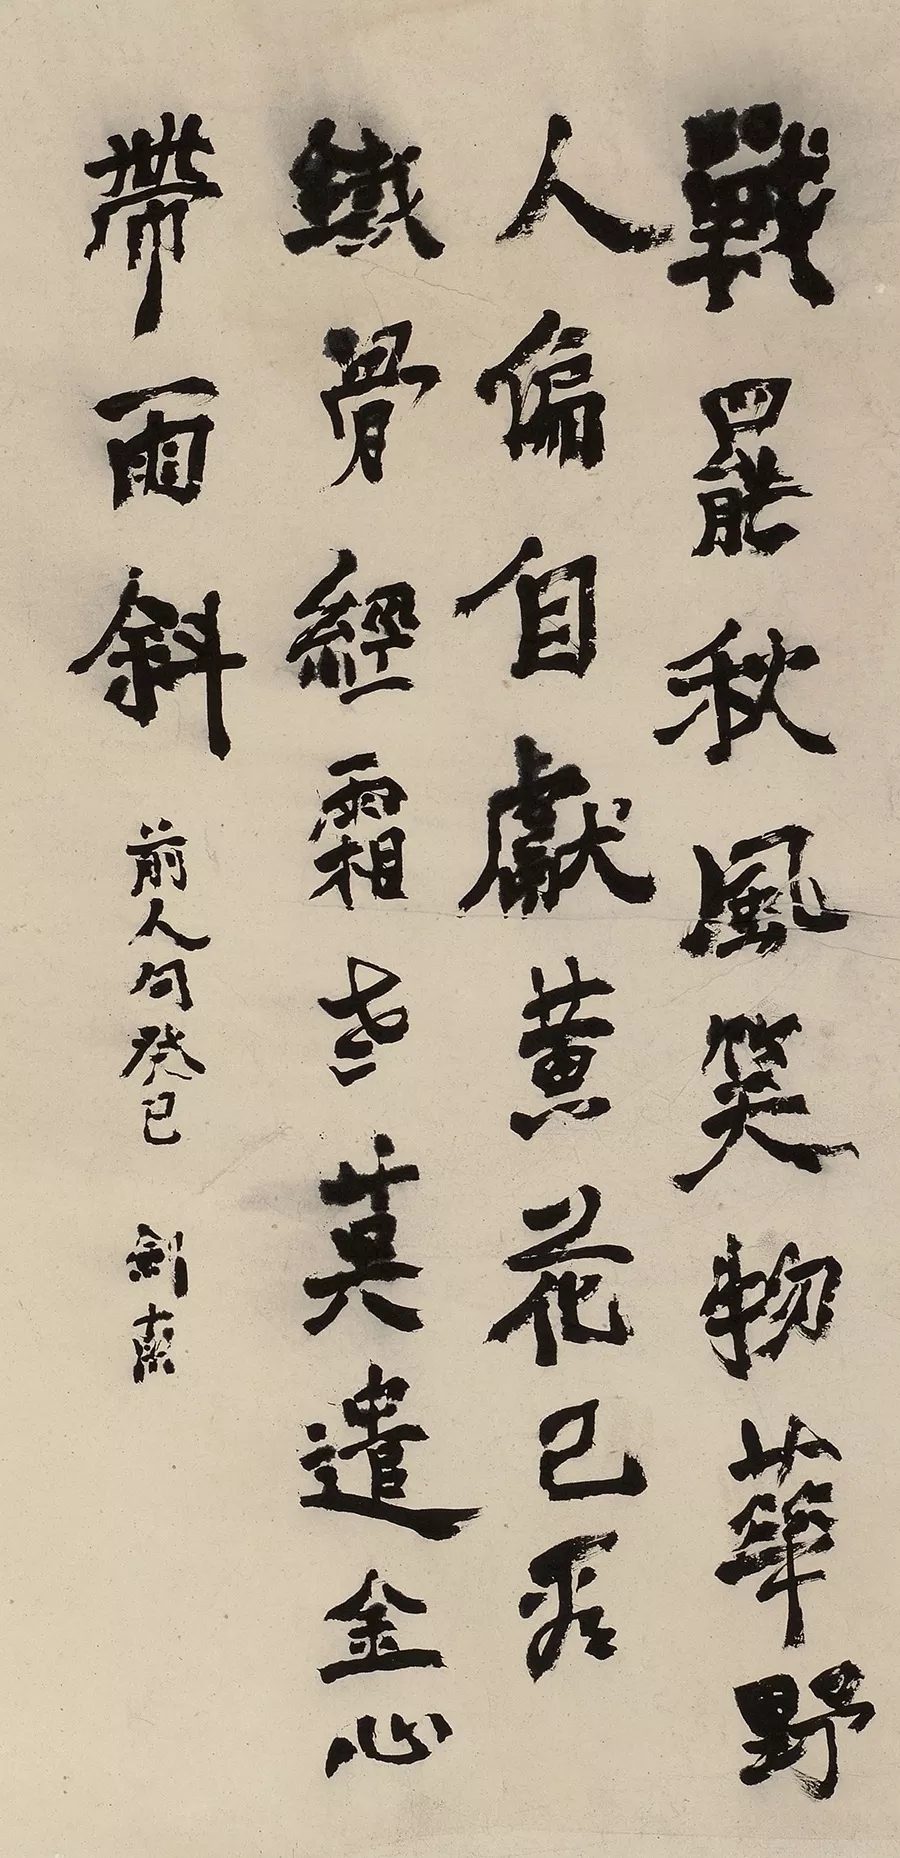 戰罷秋風笑物華野
人偏自獻黃花已看
鐵骨經霜老莫遣金心
帶雨斜
前人句癸巳 劍南